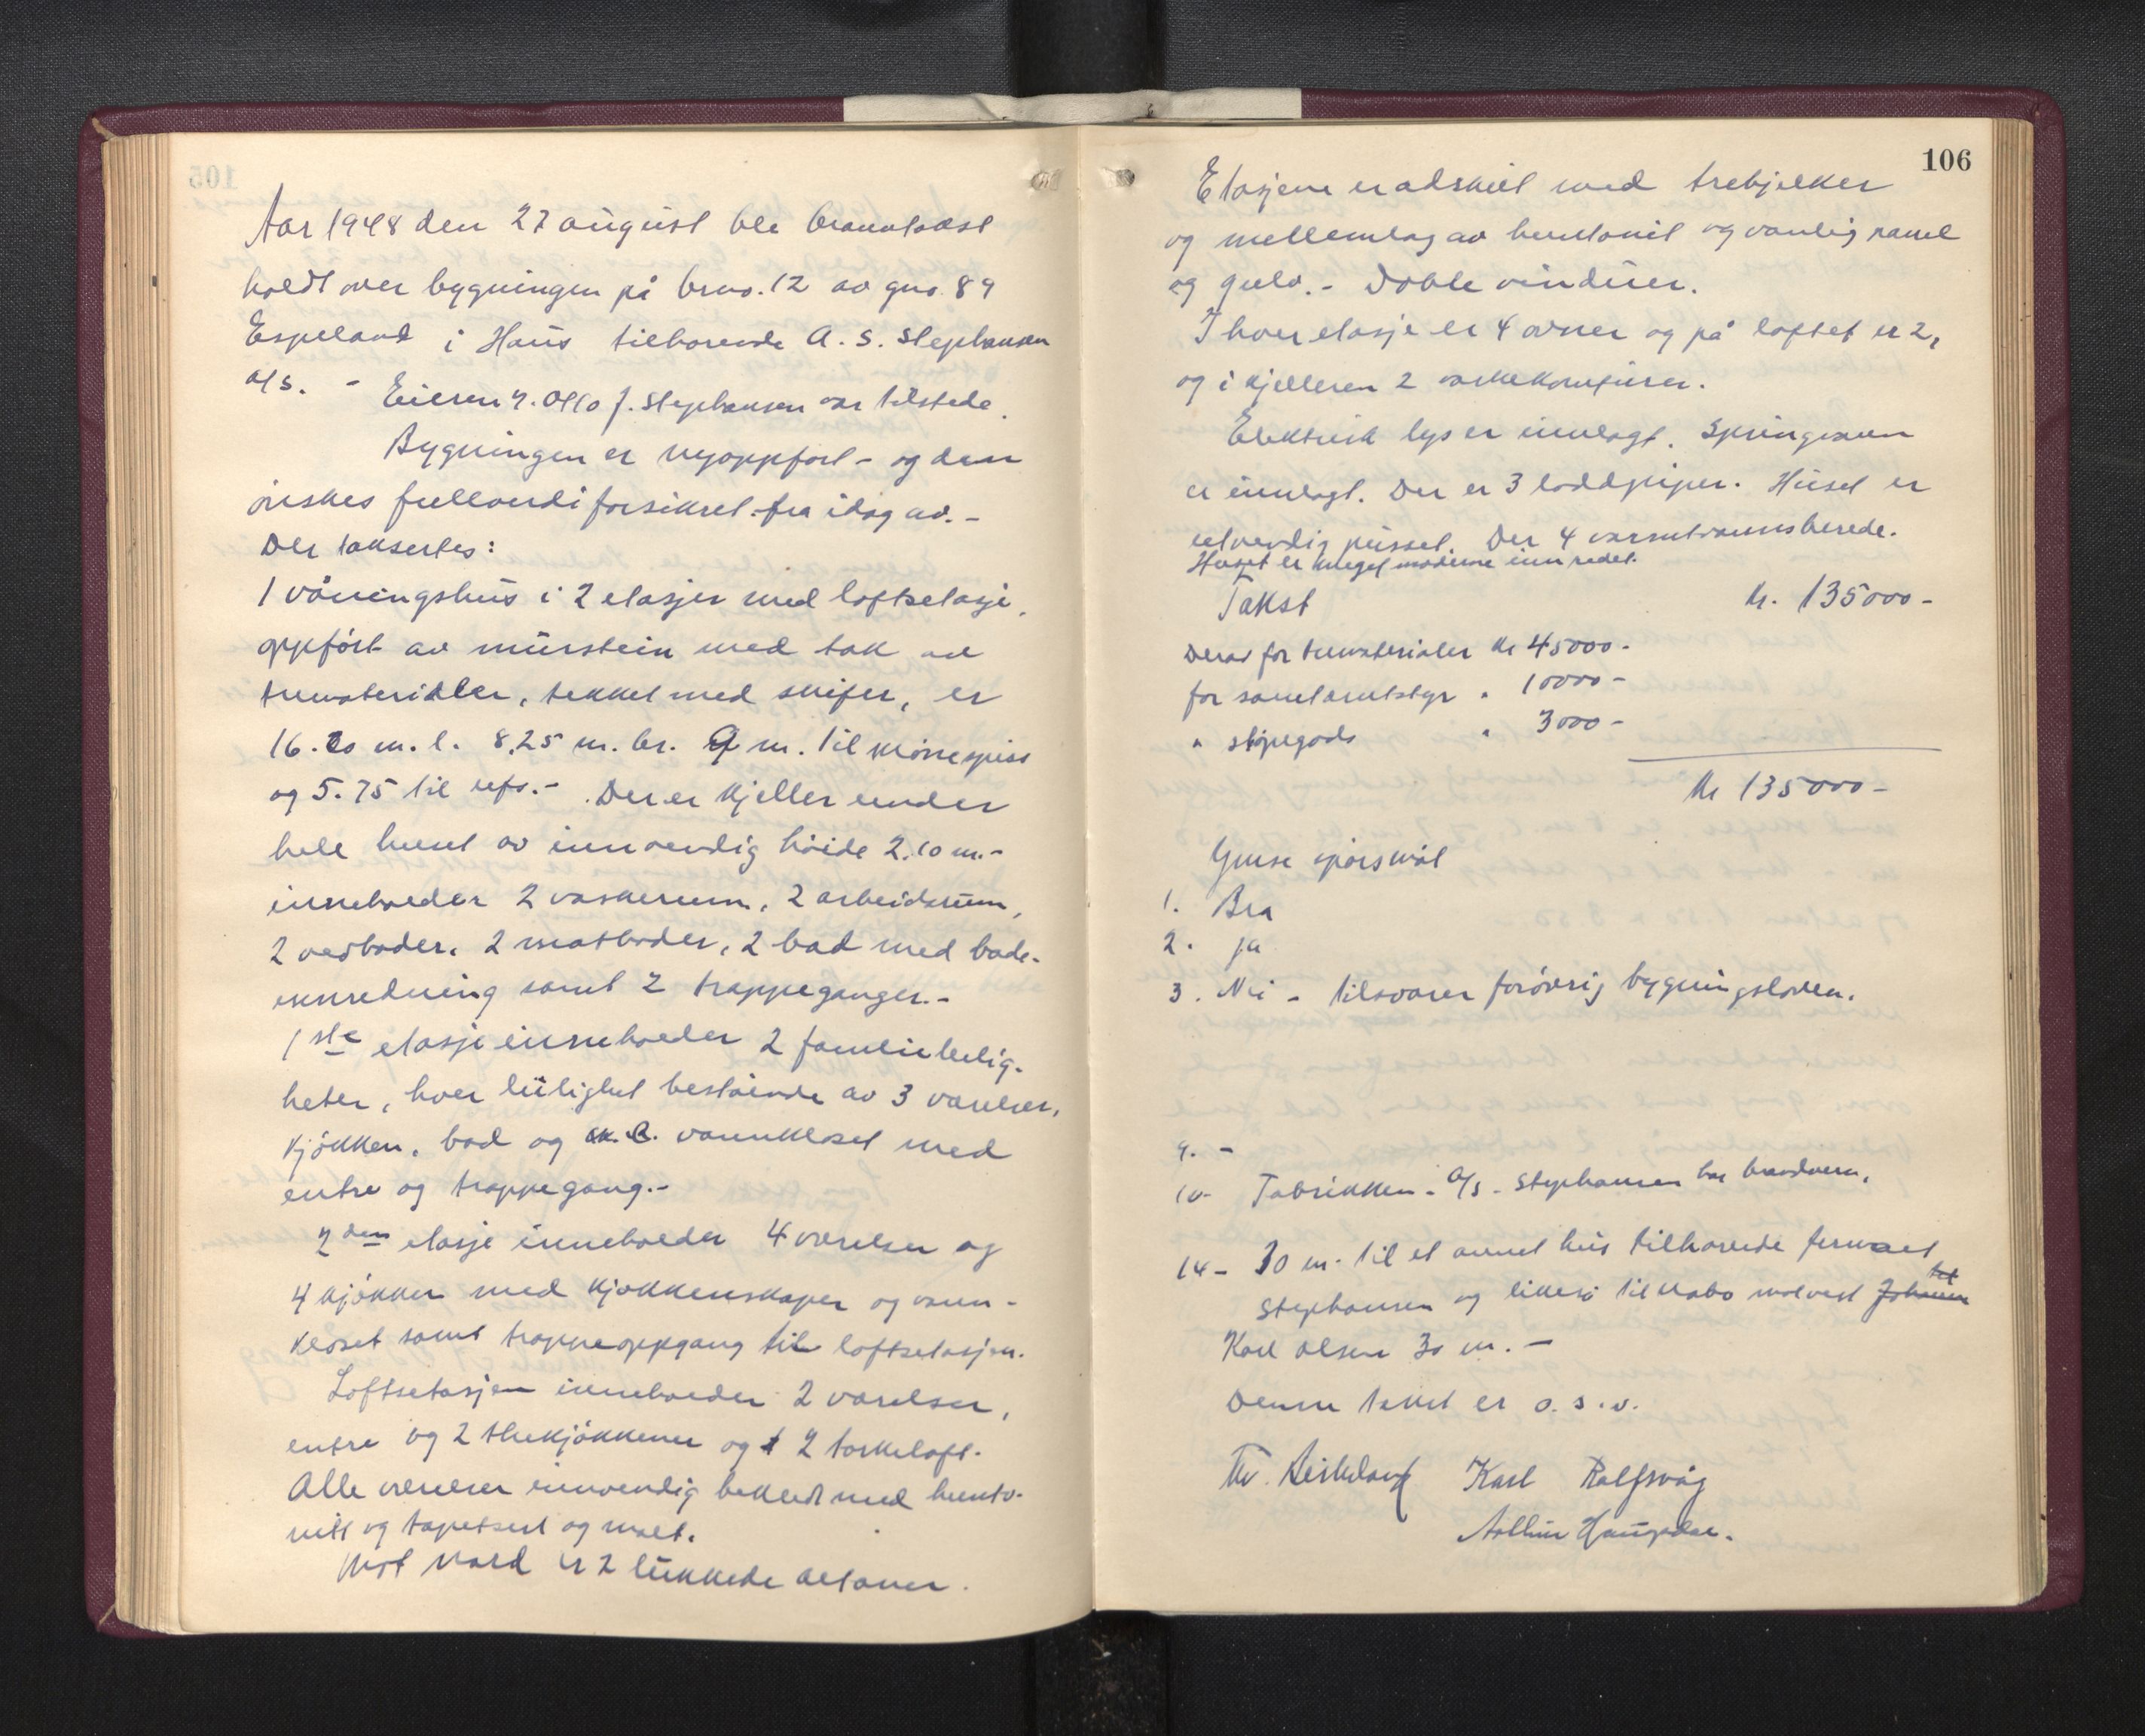 Aar 1948 den 27 august ble branntakst
holdt over bygningen på brno. 12 av gno. 89
Espeland i Haus tilhørende A. S. Stephansen
a/s. - Eieren v. Otto J. Stephansen var tilstede.
Bygningen er nyoppført - og den
ønskes fullverdiforsikret fra idag av. -
Der taksertes:
1 våningshus i 2 etasjer med loftsetasje,
oppført av murstein med tak av
trematerialer, tekket med skifer, er
16.20 m. l. 8,25 m. br. 9 m. til mønespiss
og 5.75 til ufs. - Der er kjeller under
hele huset av innvendig høide 2.10 m. -
inneholder 2 vaskerum, 2 arbeidsrum,
2 vedboder, 2 matboder, 2 bad med bade-
innredning samt 2 trappeganger. -
1ste etasje inneholder 2 familieleilig-
heter, hver leilighet bestående av 3 værelser,
kjøkken, bad og vannkloset med
entre og trappegang. -
2den etasje inneholder 4 værelser og
4 kjøkken med kjøkkenskaper og vann-
kloset samt trappeoppgang til loftsetasjen.
Loftsetasjen inneholder 2 værelser,
entre og 2 thekjøkkener og 2 tørkeloft.
Alle værelser innvendig bekledt med hunto-
nitt og tapetsert og malt.
Mot nord er 2 lukkede altaner.
106
Etasjene er adskilt med trebjelker
og mellemlag av huntonit og vanlig panel
og gulv. - Doble vinduer.
I hver etasje er 4 ovner og på loftet er 2,
og i kjelleren 2 vaskekomfurer.
Elektrisk lys er innlagt. Springvann
er innlagt. Der er 3 loddpiper. Huset er
utvendig pusset. Der 4 varmtvannsberede.
Huset er meget moderne innredet.
Takst kr. 135000 -
Derav for trematerialer kr 45000 -
for sanitærutstyr " 10000 -
" støpegods " 3000 -
kr 135000 -
Gense spørsmål
1. Bra
2. ja
3. Nei - tilsvarer forøvrig bygningsloven.
9. -
10 - Fabrikken - A/s - Stephansen har brandvern.
14 - 30 m. til et annet hus tilhørende firmaet
Stephansen og likeså til nabo mot vest
Karl Olsen 30 m. -
Denne takst er o. s. v.
Karl Rolfsvåg
Arthur Haugedal.